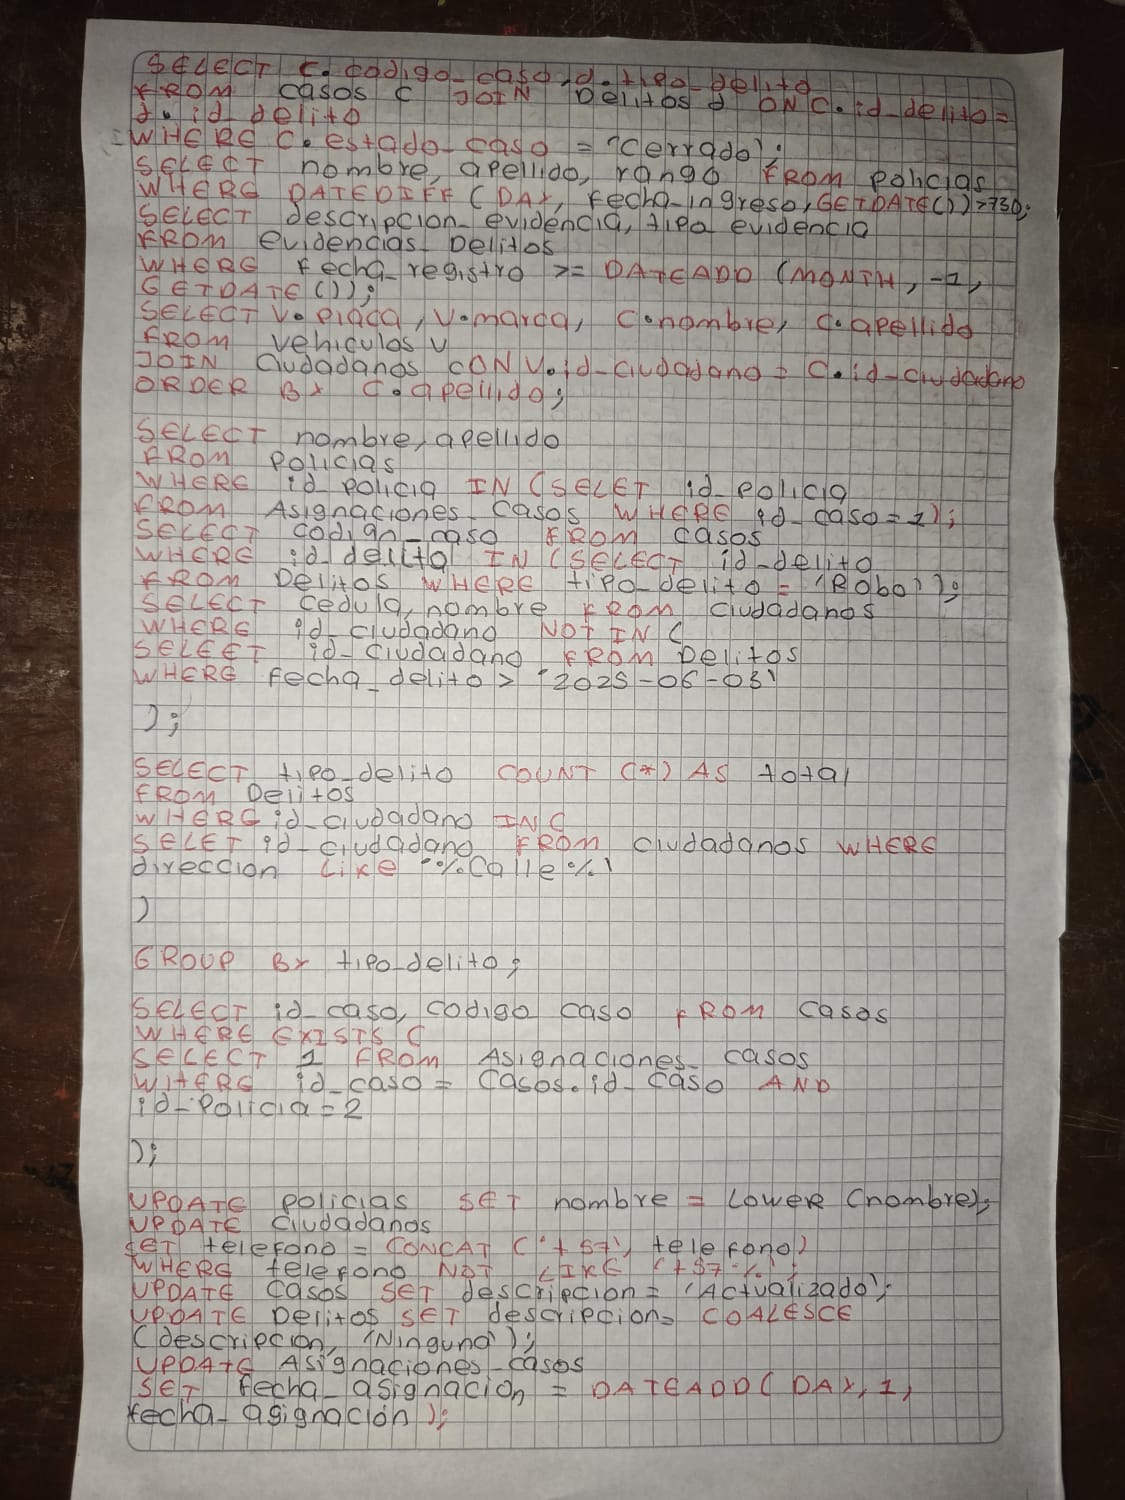 SELECT c.codigo_caso,d.tipo_delito
FROM casos c JOIN Delitos d ON c.id_delito=
d.id_delito
WHERE c.estado_caso = 'cerrado';
SELECT nombre, apellido, rango FROM policias
WHERE DATEDIFF (DAY, fecha_ingreso, GETDATE())>730;
SELECT descripcion_evidencia, tipo evidencia
FROM evidencias_Delitos
WHERE fecha_registro >= DATEADD (MONTH, -1,
GETDATE());
SELECT v.placa, v.marca, c.nombre, c.apellido
FROM vehiculos v
JOIN Ciudadanos c ON v.id_ciudadano = c.id_ciudadano
ORDER BY c.apellido;
SELECT nombre, apellido
FROM policias
WHERE id_policia IN (SELET id_policia
FROM Asignaciones_casos WHERE id_caso=1);
SELECT codign_caso FROM casos
WHERE id_delito IN (SELECT id_delito
FROM Delitos WHERE tipo_delito = 'Robo');
SELECT cedula, nombre FROM ciudadanos
WHERE id_ciudadano NOT IN (
SELECT id_ciudadano FROM Delitos
WHERE fecha_delito > '2025-06-03'
);
SELECT tipo_delito COUNT (*) AS total
FROM Delitos
WHERE id_ciudadano IN (
SELET id_ciudadano FROM ciudadanos WHERE
direccion Like '%Calle%'
)
GROUP BY tipo_delito;
SELECT id_caso, codigo caso FROM casos
WHERE EXISTS (
SELECT 1 FROM Asignaciones_casos
WHERE id_caso = casos.id_caso AND
id_policia=2
);
UPDATE policias SET nombre = Lower (nombre);
UPDATE ciudadanos
SET telefono = CONCAT ('+57', telefono)
WHERE telefono NOT LIKE '+57%';
UPDATE casos SET descripcion = 'Actualizado';
UPDATE Delitos SET descripcion= COALESCE
(descripcion, 'Ninguna');
UPDATE Asignaciones_casos
SET fecha_asignacion = DATEADD (DAY, 1,
fecha_asignación);